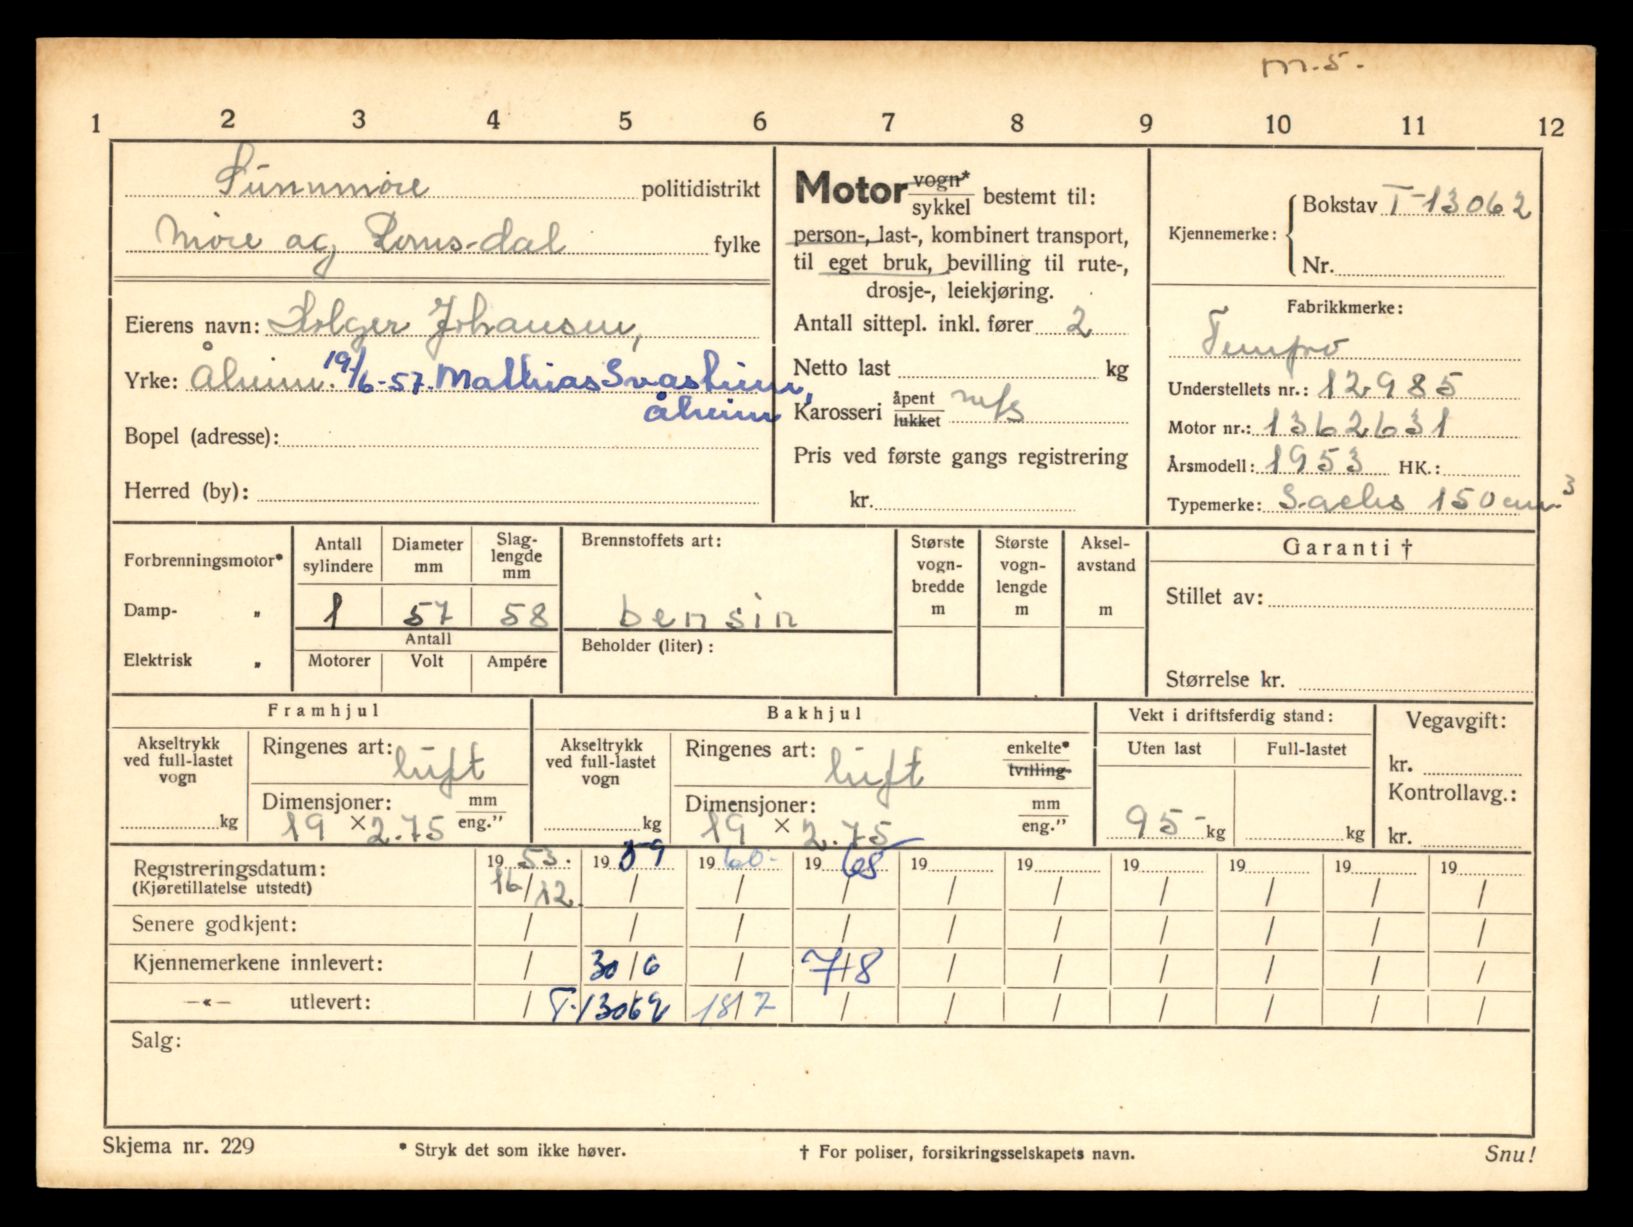 m.5.
1 2 3 4 5 6 7 8 9 10 11 12
Sunnmøre politidistrikt
Møre og Romsdal fylke
Eierens navn: Holger Johansen,
Yrke: Åheim. 19/6-57. Mathias Svasheim,
Åheim
Bopel (adresse):
Herred (by):
Motor vogn* sykkel bestemt til:
person-, last-, kombinert transport,
til eget bruk, bevilling til rute-,
drosje-, leiekjøring.
Antall sittepl. inkl. fører 2
Netto last kg
Karosseri åpent lukket mfs
Pris ved første gangs registrering
kr.
Kjennemerke: Bokstav T-13062
Nr.
Fabrikkmerke:
Tempo
Understellets nr.: 12985
Motor nr.: 1362631
Årsmodell: 1953 HK.:
Typemerke: Sachs 150 cm³
Forbrenningsmotor*
Damp- „
Elektrisk „
Antall sylindere 1
Diameter mm 57
Slag-lengde mm 58
Antall
Motorer Volt Ampére
Brennstoffets art:
bensin
Beholder (liter):
Største vogn-bredde m
Største vogn-lengde m
Aksel-avstand m
Garanti †
Stillet av:
Størrelse kr.
Framhjul
Akseltrykk ved full-lastet vogn kg
Ringenes art: luft
Dimensjoner: 19 × 2.75 mm eng."
Bakhjul
Akseltrykk ved full-lastet vogn kg
Ringenes art: luft enkelte* tvilling
Dimensjoner: 19 × 2.75 mm eng."
Vekt i driftsferdig stand:
Uten last Full-lastet
95- kg kg
Vegavgift:
kr.
Kontrollavg.:
kr.
Registreringsdatum: 1953. 1959 1960- 1968 19 19 19 19 19 19
(Kjøretillatelse utstedt) 16/12 / / / / / / / / /
Senere godkjent: / / / / / / / / / /
Kjennemerkene innlevert: / 30/6 / 7/8 / / / / / /
—«— utlevert: / T-13062 18/7 / / / / / / /
Salg:
Skjema nr. 229
* Stryk det som ikke høver.
† For poliser, forsikringsselskapets navn.
Snu!